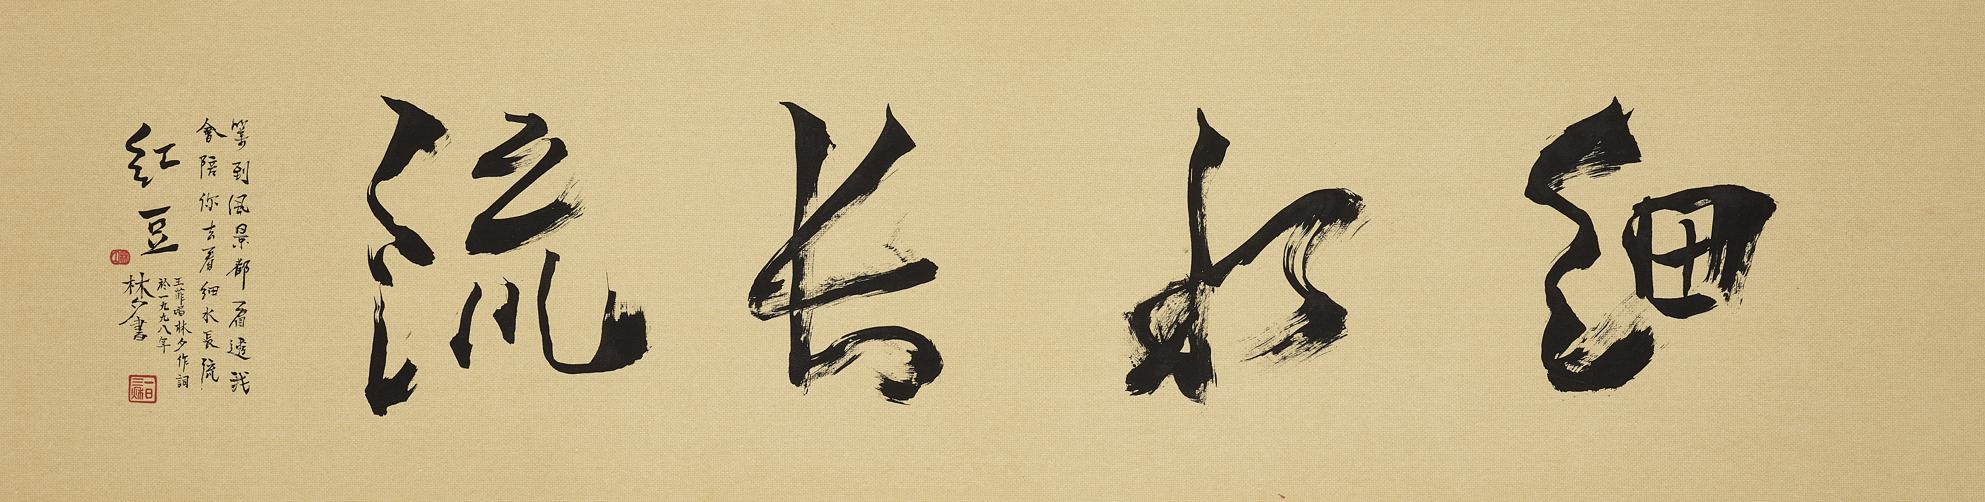 細水长流
等到風景都看透我
會陪你去看細水長流
紅豆
王菲唱林夕作詞
於一九九八年
林夕書
一日三秋